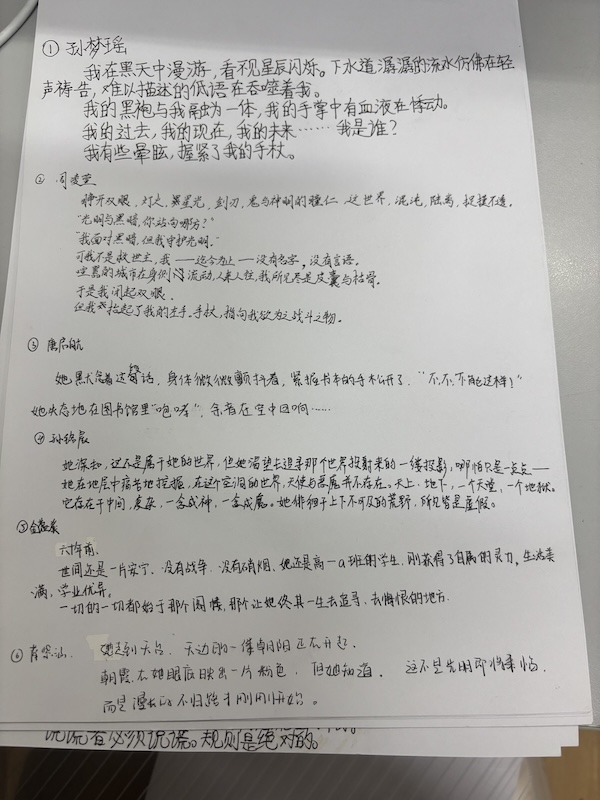 ① 孙梦瑶
我在黑天中漫游，看不见星辰闪烁。下水道潺潺的流水仿佛在轻
声祷告，难以描述的低语在吞噬着我。
我的黑袍与我融为一体，我的手掌中有血液在悸动。
我的过去，我的现在，我的未来……我是谁？
我有些晕眩，握紧了我的手杖。
② 司凌萱
睁开双眼，灯火，星光，剑刃，鬼与神明的瞳仁，这世界，混沌，陆离，捉摸不透。
“光明与黑暗，你站向哪方？”
“我面对黑暗，但我守护光明。”
可我不是救世主，我——迄今为止——没有名字，没有言语。
喧嚣的城市在身侧流动，人来人往，我所见尽是皮囊与枯骨。
于是我闭起双眼，
但我抬起了我的左手，手杖，指向我欲为之战斗之物。
③ 唐启航
她默念着这句话，身体微微颤抖着，紧握书本的手松开了。“不，不，不能这样！”
她失态地在图书馆里“咆哮”，余音在空中回响……
④ 孙铭辰
她深知，这不是属于她的世界，但她渴望去追寻那个世界投射来的一缕投影，哪怕只是一点点——
她在地层中痛苦地挖掘，在这个空洞的世界，天使与恶魔并不存在。天上，地下，一个天堂，一个地狱。
它存在于中间，复杂，一念成神，一念成魔。她徘徊于上下不可及的荒野，所见皆是虚假。
⑤
六十年前，
世间还是一片安宁，没有战争，没有硝烟，她还是高一a班的学生，刚获得了自属的灵力，生活美
满，学业优异。
一切的一切都始于那个阁楼，那个让她终其一生去追寻、去悔恨的地方。
⑥
她走到天台，天边的一缕朝阳正在升起，
朝霞在她眼底映出一片粉色，但她知道，这不是光明即将降临，
而是漫长的不归路才刚刚开始。
说谎者必须说谎。规则是绝对的。